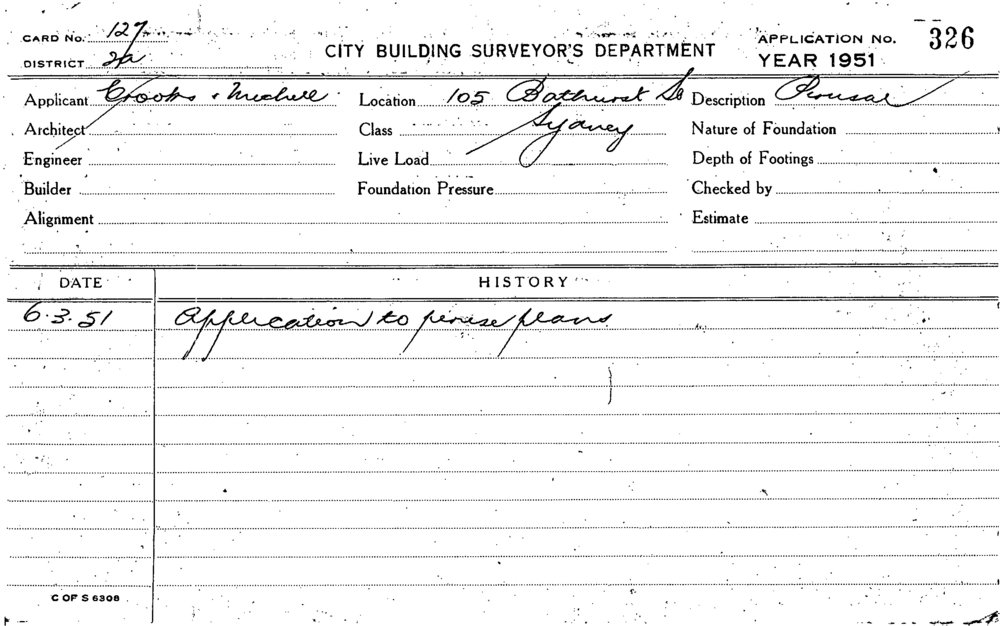 CARD NO. 127
CITY BUILDING SURVEYOR'S DEPARTMENT
APPLICATION NO. 326
DISTRICT 2a
YEAR 1951
Applicant Crooks & Michell Location 105 Bathurst St Description Perusal
Architect Class Sydney Nature of Foundation
Engineer Live Load Depth of Footings
Builder Foundation Pressure Checked by
Alignment Estimate
DATE HISTORY
6.3.51 Application to peruse plans
C OF S 6308